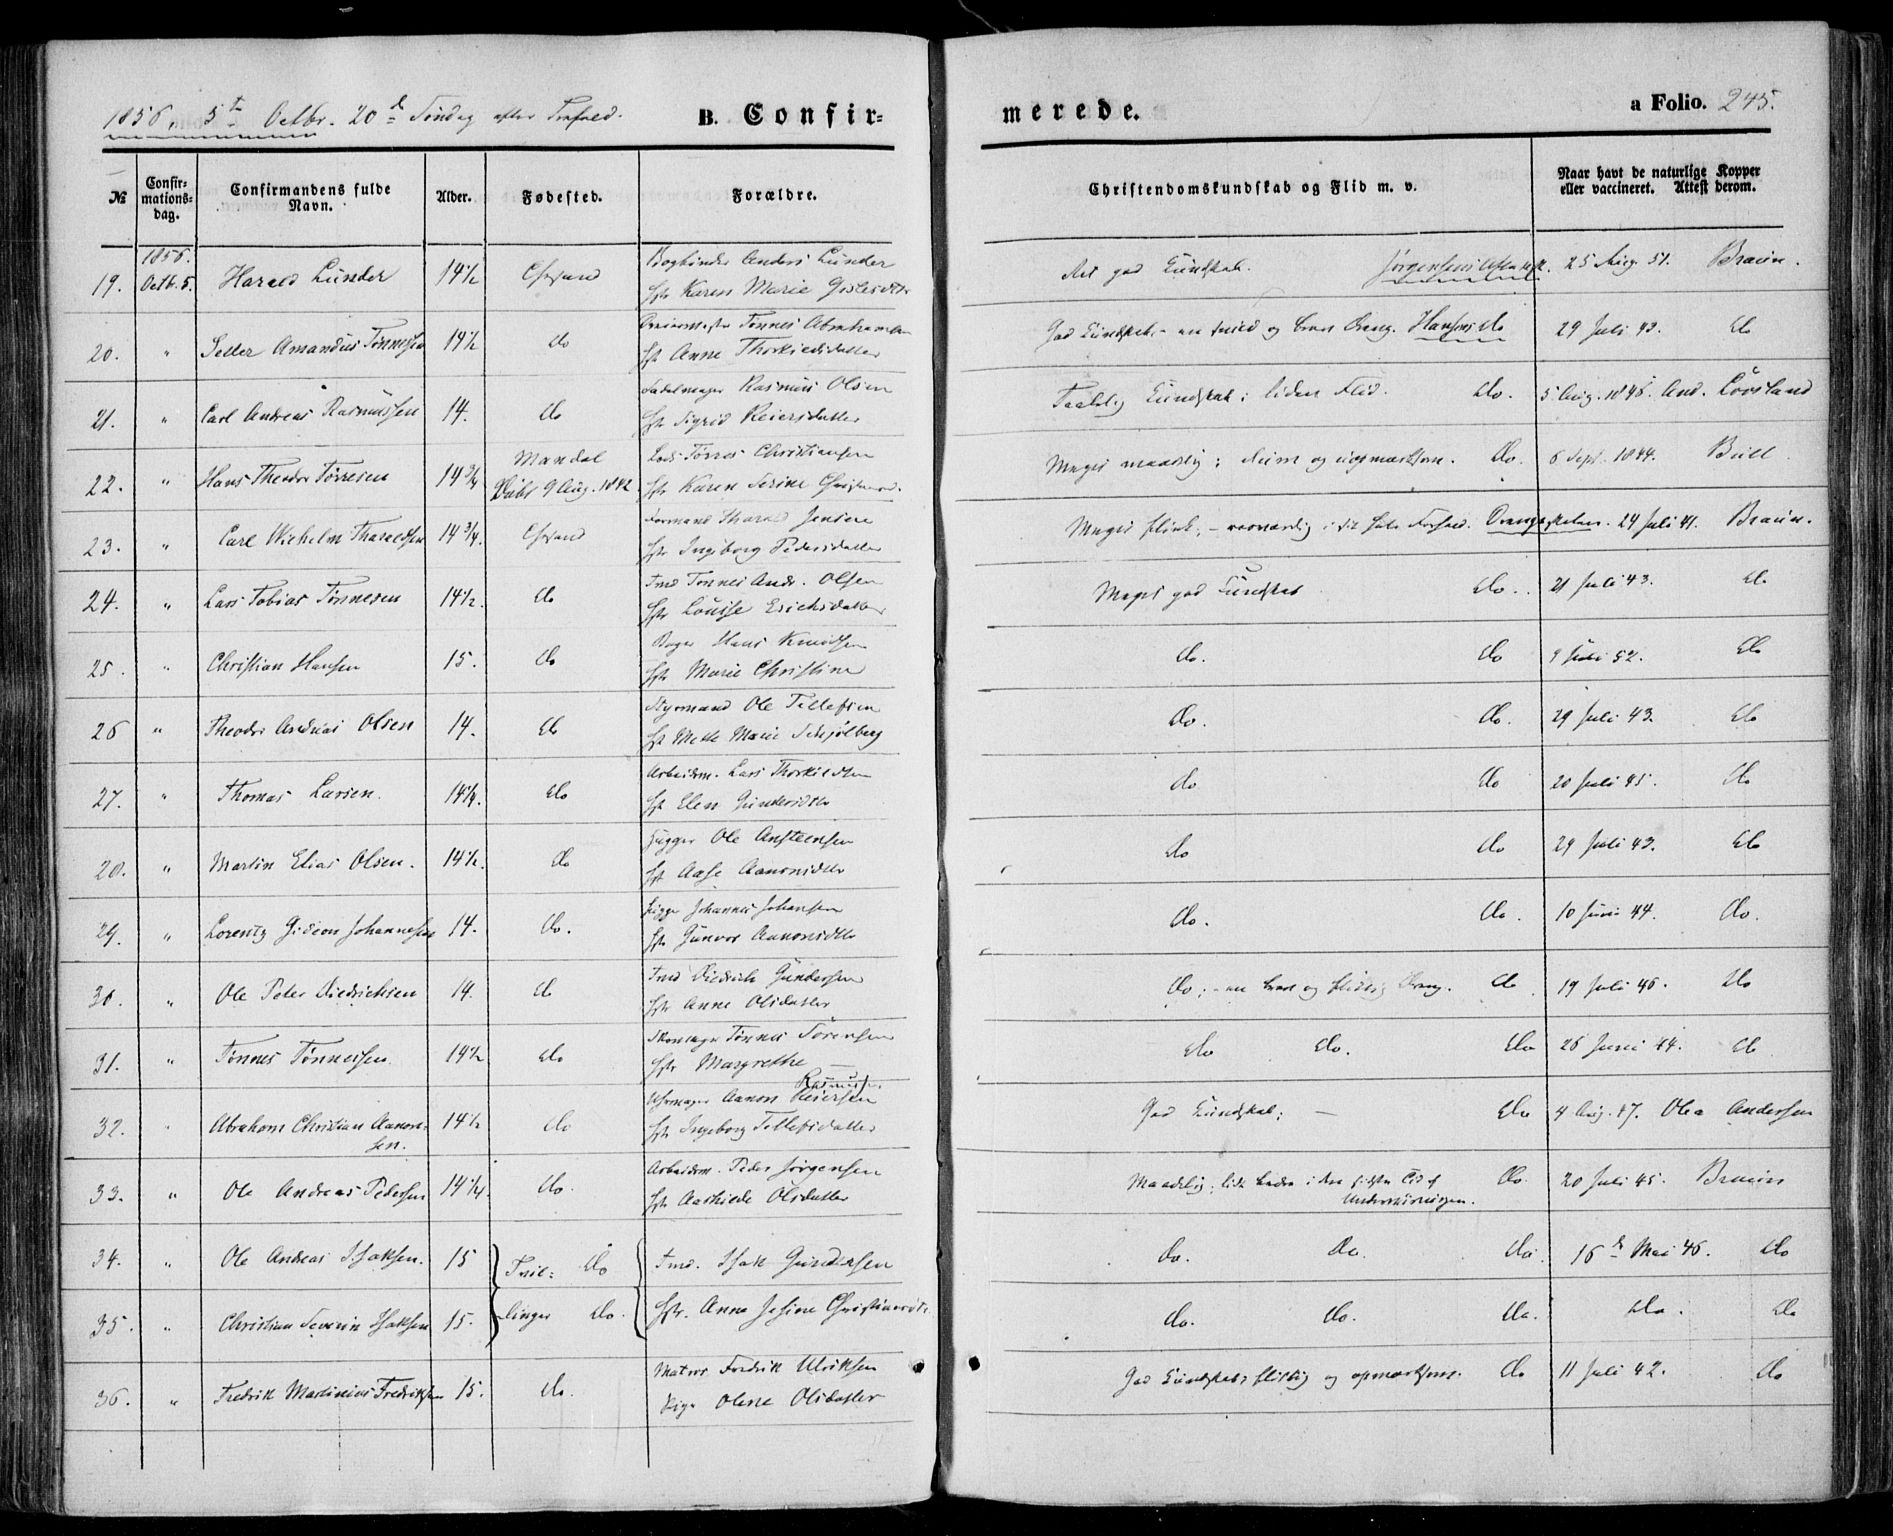 1856. 5t Octbr. 20d Søndag efter Trefold.
B. Confir-
merede.
a Folio. 245.
№
Confir-
mations-
dag.
Confirmandens fulde
Navn.
Alder.
Fødested.
Forældre.
Christendomskundskab og Flid m. v.
Naar havt de naturlige Kopper
eller vaccineret. Attest derom.
1856.
19. Octb. 5. Harald Lunder 14½ Chrsand Bogbinder Anders Lunder
Hst Karen Marie
god Kundskab. 25 Aug. 51. Braun.
20. " Amandus Tønnesen 14½ do Tønnes Abrahamsen
Hst Anne Thorkildsdatter
God Kundskab - en og brav Dreng. Hansens do 29 Juli 43. do
21. " Carl Andreas Rasmussen 14. do Sadelmager Rasmus Olsen
Hst Sigrid Reiersdatter
Taalelig Kundskab; liden Flid. do. 5 Aug. 1845. And. Løvsland
22. " Hans Theodor Tørresen 14¾ Mandal Lods Tørres Christiansen
Døbt 9 Aug. 1842 Hst Karen Serine
Meget maadelig; og uopmærksom. do. 6 Sept. 1844. Bull
23. " Carl Wilhelm Tharaldsen 14¾. Chrsand Formand Tharald Jensen
Hst Ingeborg Pedersdatter
Meget flink; - Forhold. Drengeskolen. 24 Juli 41. Braun.
24. " Lars Tobias Tønnesen 14½. do Tmd Tønnes Andr. Olsen
Hst Louise Erichsdatter
Meget god Kundskab do.. 21 Juli 43. do
25. " Christian Hansen 15. do Bager Hans Knudsen
Hst Marie Christine
do. do 9 52. do
26 " Theodor Andreas Olsen 14. do Styrmand Ole Tellefsen
Hst Mette Marie Schjølberg
do. do. 29 Juli 43. do
27. " Thomas Larsen. 14¼. do Arbeidsm. Lars Thorkildsen
Hst Elen
do do 20 Juli 45. do
28. " Martin Elias Olsen. 14½. do Ligger Ole Anstensen
Hst Aase Aanonsdtr
do do 29 Juli 43. do
29. " Lorentz Gideon Johannesen 14. do. Ligger Johannes Johansen
Hst Gunvor Aanonsdtr
do. do. 10 Juni 44. do.
30. " Ole Peter Diedrichsen 14. do Tmd Diedrich Gundersen
Hst Anne Olsdatter
do; - en brav og flittig Dreng. do 19 Juli 46. do
31. " Tønnes Tønnessen 14½ do Skomager Tønnes Sørensen
Hst Margrethe —
Rasmussen
do do. do 26 Juni 44. do
32. " Abraham Christian Aanon-
sen. 14½ do Uhrmager Aanon Reiersen
Hst Ingeborg Tellefsdatter
God Kundskab; — do 4 Aug. 47. Ole Andersen
33. " Ole Andreas Pedersen 14¼. do. Arbeidsm. Peder Jørgensen
Hst Aashilde Olsdatter
Maadelig; lidt bedre i den sidste Tid af
Underviisningen. do. 20 Juli 45. Braun
34. " Ole Andreas Isaksen. 15 Tvil- do Tmd. Isak Gundersen
do. do. do. 16d Mai 46. do
35. " Christian Severin Isaksen 15. linger do. Hst. Anne Jesine Christiansdtr
do. do. do. do. do
36. " Fredrik Martinius Fredriksen 15. do. Matros Fredrik Ulriksen
Pige Olene Olsdatter
God Kundskab; flittig og opmærksom. do 11 Juli 42. do